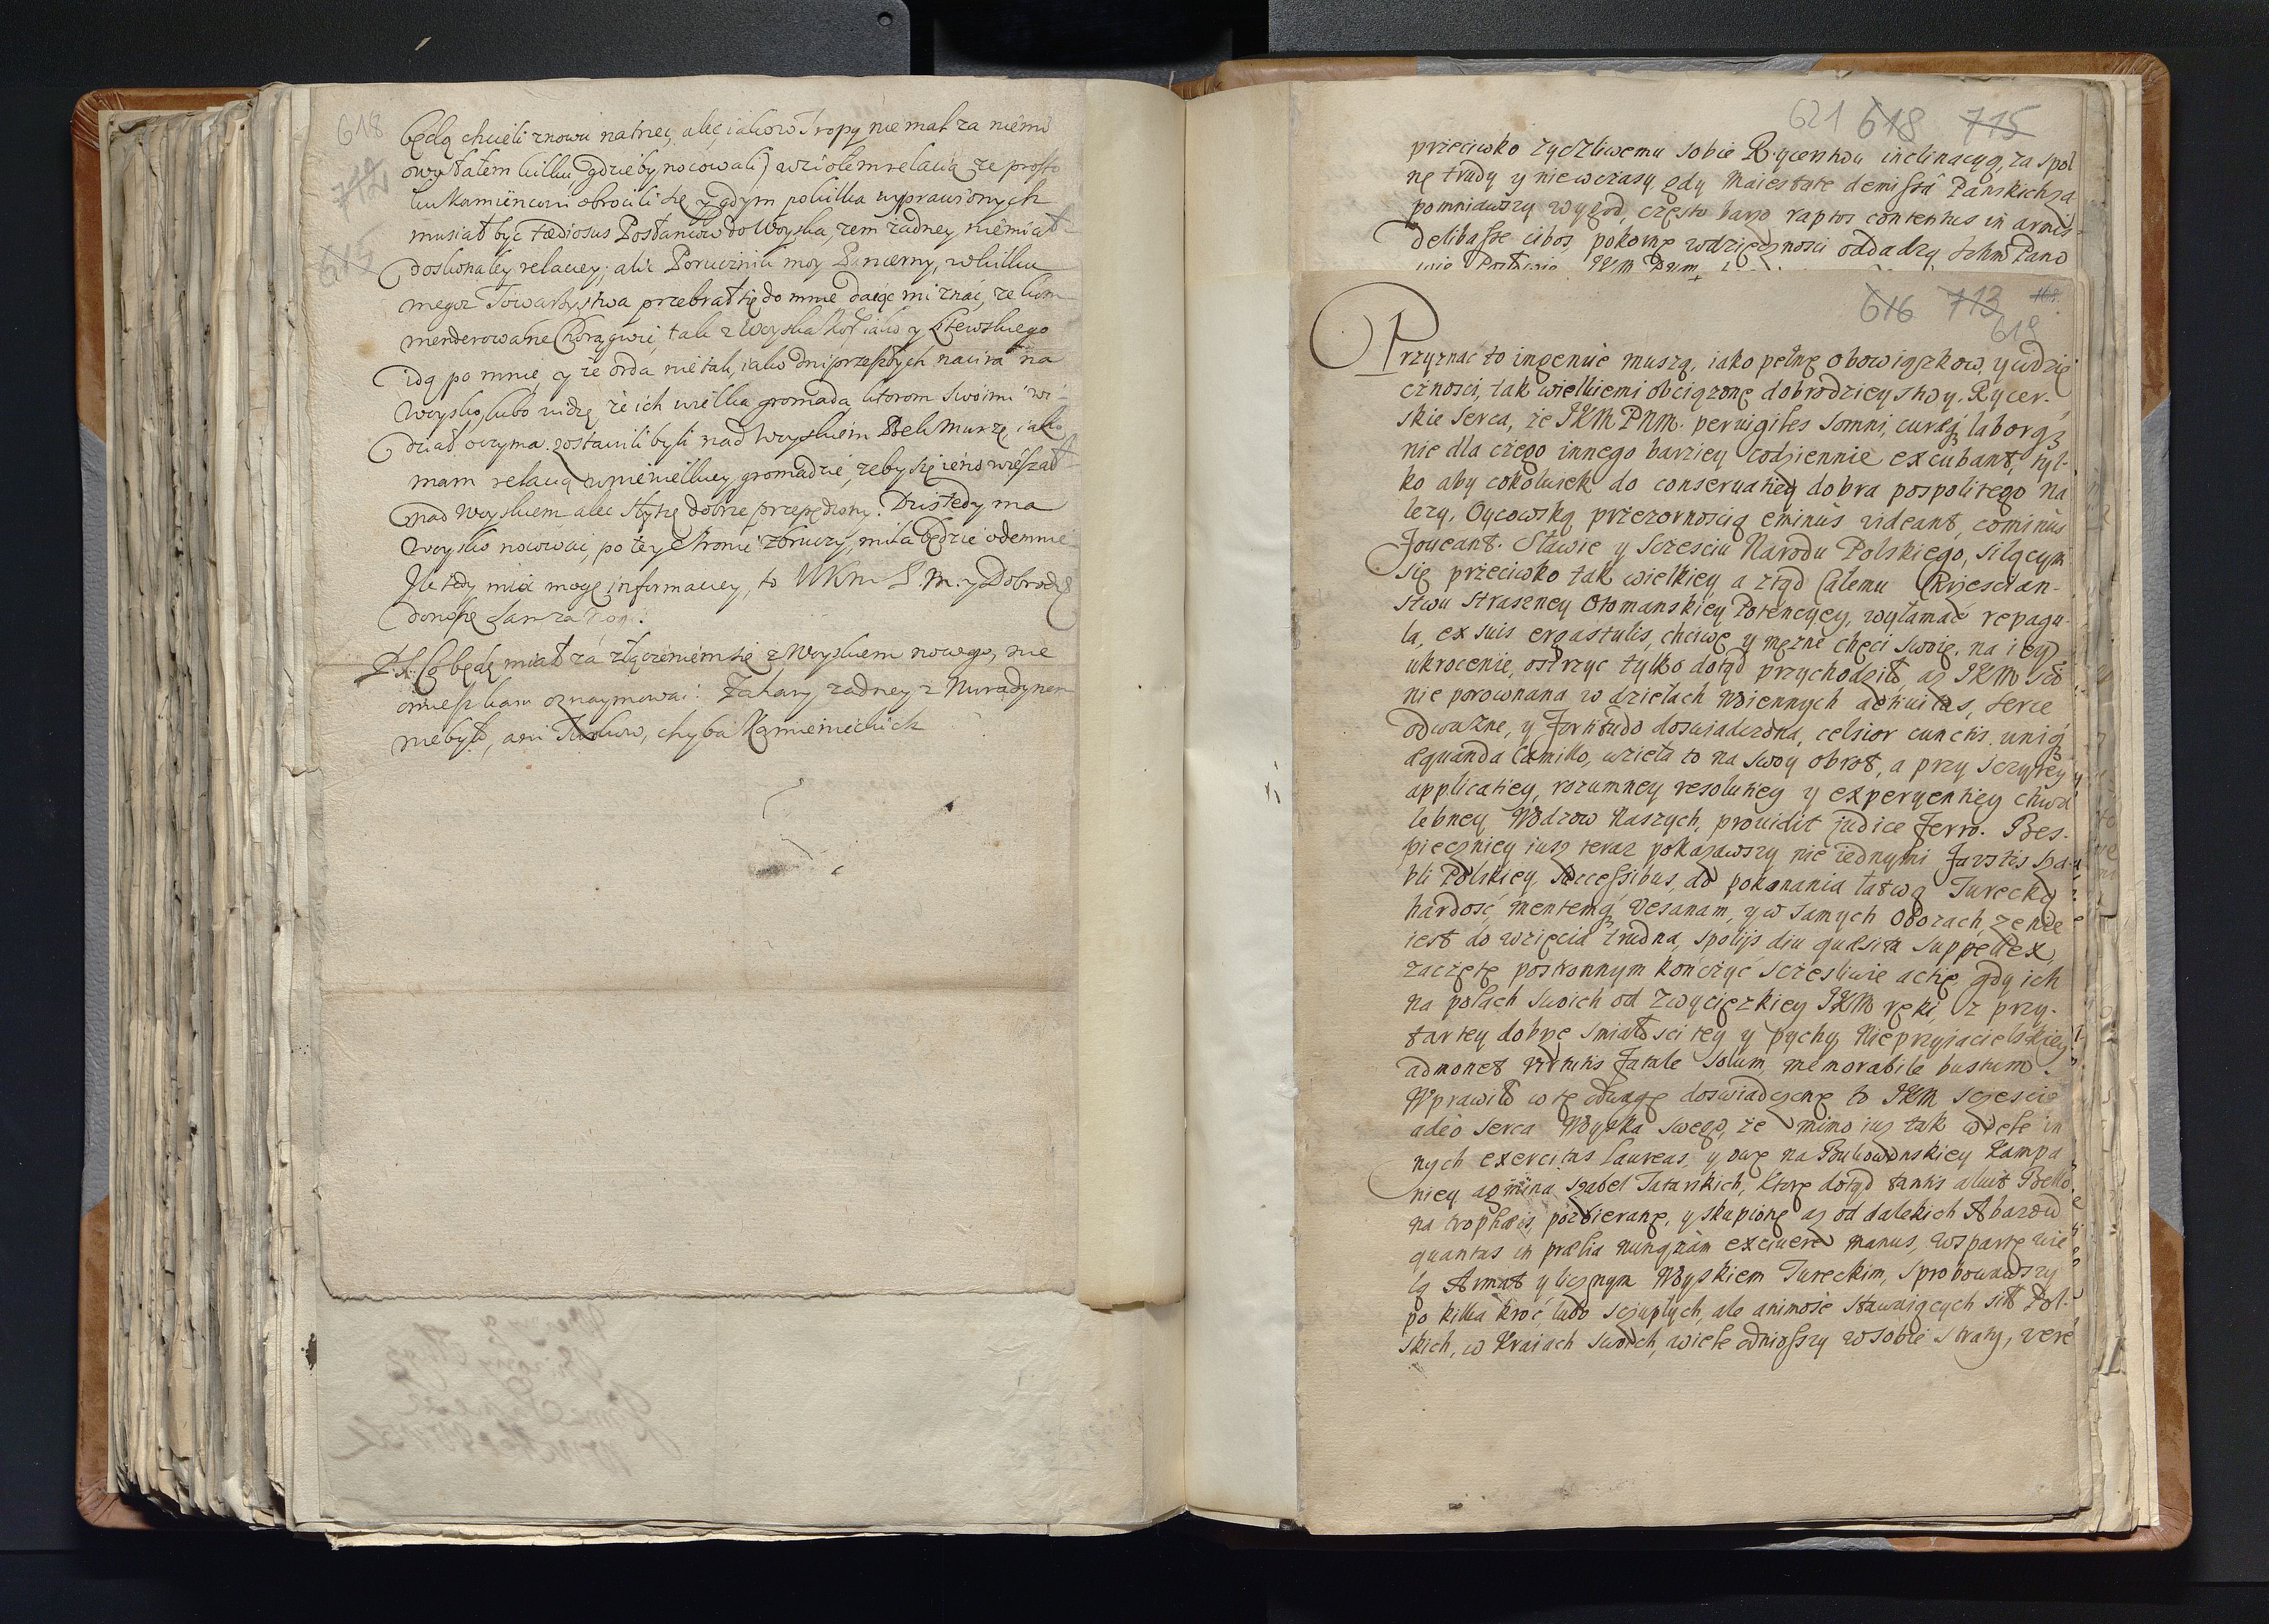 618
712
615
będą chcieli znowu natrzeć, aleć iakom Tropy nie miał za niemi
owysłałem kilku, gdzieby nocowali) wziołem relacią że prosto
ku Kamiencowi obrocili się, y gdym pokilka wyprawionych
musiał być tædiosus Posłancow do Woyska, zem żadney niemiał
doskonałey relacyey; alić Porucznik moy Pancerny, w kilku
Towarzystwa przebrał się do mnie daiąc mi znać, że kom
menderowane Chorągwie, tak z Woyska Kor iako y Litewskiego
idą po mnie, y że orda nie tak, iako dni przeszłych naciera na
Woysko, lubo widzę że ich wielka gromada ktorom swoimi wi-
dział oczyma zostawili byli nad Woyskiem Bek Murzę iako
mam relacią w niewielkiey gromadzie, żeby się ieno wieszał
nad Woyskiem aleć słyszę dobrze przepędzony. Dziś tedy ma
Woysko nocować, po tey stronie Zbruczy, mila będzie odemnie
Ile tedy mieć mogę informacyey, to WKM P. M. y Dobrodz
donoszę
P.S. Co będę miał za złączeniem się z Woyskiem nowego, nie
omieszkam oznaymować. Tatarow żadney z Nuradynem
niebyło, ani Turkow, chyba Kamienieckich
621 618 715
przeciwko zyczliwemu sobie Rycerstwu inclinacyą, za spol
ne trudy y niewczasy, gdy Maiestate demissâ Panskich za
pomniawszy wygod, często barzo raptos contentus in armis
delibasse cibos, pokorne wdzięcznosci oddadzą Ichm Pano
wie Posłowie IKM
616 713 168
619
Przyznac to ingenuè muszą, iako pełne obowiązkow, y wdzię
cznosci, tak wielkiemi obciązone dobrodzieystwy Rycer-
skie serca, że IKM PNM. pervigiles somni, curæq laborq
nie dla czego innego barziey codziennie excubant, tyl-
ko aby cokolwiek do conservatiey dobra pospolitego na
lezy, Oycowską przezornoscią eminùs videant, cominùs
foveant. Sławie y sczesciu Narodu Polskiego, silącym
się przeciwko tak wielkiey, a ztąd Całemu Chrzescian-
stwu straszney Otomanskiey Potencyey, wyłamać repagu-
la, ex suis ergastulis, chciwe y męzne chęci swoie, na iey
ukrocenie, ostrzyc tylko dotąd przychodziło, aż IKM
nie porownana w dziełach Woiennych activitas, serce
odwazne, y Fortitudo doswiadczona, celsior cunctis, uniq
æquanda Camillo, wzieła to na swoy obrot, a przy sczyrey
applicatiey, rozumney resolutiey y experyentiey chwa
lebney Wodzow Naszych, providit judice ferro. Bes-
pieczniey iusz teraz pokazawszy nie iednymi faustis sza-
bli Polskiey successibus, do pokonania łatwą Turecką
hardosć, mentemq vesanam, y w samych Obozach, że nie
iest do wzięcia trudna, spolijs diu quæsita suppellex,
zaczęte postronnym kończyć sczesliwie actię, gdy ich
na polach swoich od zwycięzkiey IKM ręki z przy-
tartey dobrze smiałosci tey y pychy Nieprzyiacielskiey
admonet virtutis fatale solum, memorabile bustum.
Wprawiło w tę odwagę doswiadczone to IKM sczescie
adeò serca Woyska swego, że mimo iuż tak wiele in
nych exercitus laureas, y owe na Bukowinskiey Kampa
niey agmina szabel Tatarskich, ktore dotąd tantis aluit Bello
na trophæis, pozbierane, y skupione aż od dalekich Abazow
quantas in prælia nunquàm excivere manus, wsparte wie
lą Armat y licznym Woyskiem Tureckim, sprobowawszy
po kilka kroć, lubo sczupłych, ale animosè stawaiących sił Pol-
skich, w Kraiach swoich, wiele odniosszy w sobie straty, verè